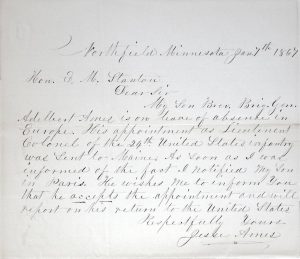 Northfield Minnesota Jan 7th 1867
Hon. E. M. Stanton
Dear Sir
My Son Brev. Brig. Gen.
Adelbert Ames is on leave of absence in
Europe. His appointment as Lieutenent
Colonel of the 24th United States infantry
was sent to Maine. As soon as I was
informed of the fact I notified my Son
in Paris. He wishes me to inform You
that he accepts the appointment and will
report on his return to the United States
Respectfully Yours
Jesse Ames